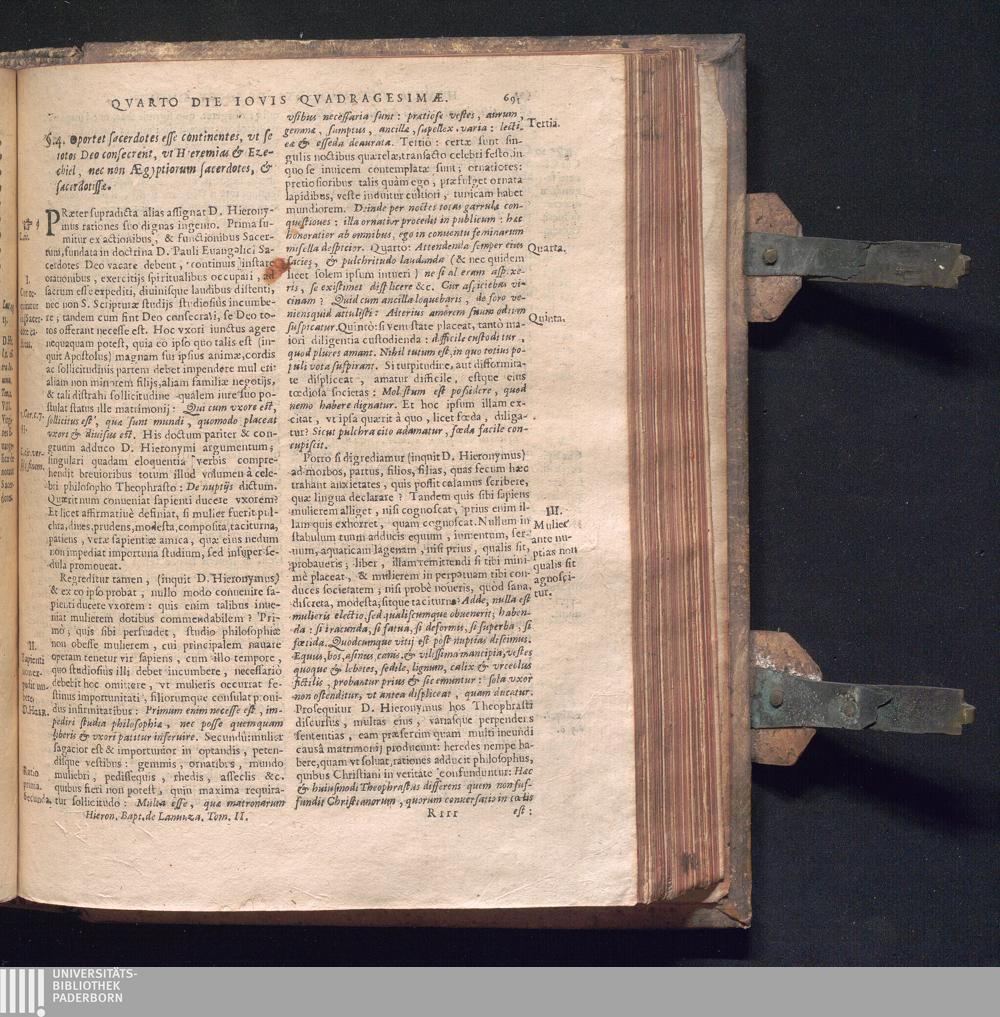 QVARTO DIE IOVIS QVADRAGESIMÆ. 691
§. 4. Oportet sacerdotes esse continentes, vt se
totos Deo consecrent, vt Hieremias & Eze-
chiel, nec non Ægyptiorum sacerdotes, &
sacerdotissæ.
PRæter supradicta alias assignat D. Hierony-
mus rationes suo dignas ingenio. Prima su-
mitur ex actionibus, & functionibus Sacer-
tum, fundata in doctrina D. Pauli Euangelici Sa-
cerdotes Deo vacare debent, continuis instare
orationibus, exercitijs spiritualibus occupari, ad
sacrum esse expediti, diuinisque laudibus distenti,
nec non S. Scripturæ studijs studiosius incumbe-
re; tandem cum sint Deo consecrati, se Deo to-
tos offerant necesse est. Hoc vxori iunctus agere
nequaquam potest, quia eo ipso quo talis est (in-
quit Apostolus) magnam sui ipsius animæ, cordis
ac sollicitudinis partem debet impendere mulieri:
aliam non minorem filijs, aliam familiæ negotijs,
& tali distrahi sollicitudine qualem iure suo po-
stulat status ille matrimonij: Qui cum vxore est,
sollicitus est, quæ sunt mundi, quomodo placeat
vxori & diuisus est. His doctum pariter & con-
gruum adduco D. Hieronymi argumentum;
singulari quadam eloquentia verbis compre-
hendit breuioribus totum illud volumen à cele-
bri philosopho Theophrasto: De nuptijs dictum.
Quærit num conueniat sapienti ducere vxorem?
Et licet affirmatiuè definiat, si mulier fuerit pul-
chra, diues, prudens, modesta, composita, taciturna,
patiens, veræ sapientiæ amica, quæ eius nedum
non impediat importuna studium, sed insuper se-
dula promoueat.
Regreditur tamen, (inquit D. Hieronymus)
& ex eo ipso probat, nullo modo conuenire sa-
pienti ducere vxorem: quis enim talibus inue-
niat mulierem dotibus commendabilem? Pri-
mò, quis sibi persuadet, studio philosophiæ
non obesse mulierem, cui principalem nauare
operam tenetur vir sapiens, cum illo tempore,
quo studiosius illi debet incumbere, necessariò
debebit hoc omittere, vt mulieris occurrat fe-
stinus importunitati, filiorumque consulat pronti-
dus infirmitatibus: Primum enim necesse est, im-
pediri studia philosophiæ, nec posse quemquam
liberis & vxori pariter inseruire. Secundù: mulier
sagacior est & importunior in optandis, peten-
disque vestibus: gemmis, ornatibus, mundo
muliebri, pedissequis, rhedis, asseclis &c.
quibus fieri non potest, quin maxima requira-
tur sollicitudo: Multa esse, quæ matronarum
Hieron. Bapt. de Lanuza. Tom. II.
I.
1. Cor. 7.
II.
Sapienti
D. HIER.
Ratio
prima.
Secunda.
vsibus necessaria sunt: pratiosæ vestes, aurum,
gemmæ, sumptus, ancillæ, supellex varia: lecti-
cæ & esseda deaurata. Tertiò: certæ sunt sin-
gulis noctibus quærelæ, transacto celebri festo, in
quo se inuicem contemplatæ sunt; ornatiores:
pretiosioribus talis quàm ego; præfulget ornata
lapidibus, veste induitur cultiori, tunicam habet
mundiorem. Deinde per noctes totas garrulæ con-
questiones: illa ornatior procedit in publicum: hæc
honoratior ab omnibus, ego in conuentu feminarum
misella despicior. Quartò: Attendenda semper eius
facies, & pulchritudo laudanda (& nec quidem
licet solem ipsum intueri) ne si alteram aspexe-
ris, se existimet displicere &c. Cur aspiciebas vi-
cinam? Quid cum ancilla loquebaris, de foro ve-
niensquid attulisti: Alterius amorem suum odium
suspicatur. Quintò: si venustate placeat, tantò ma-
iori diligentia custodienda: difficile custoditur,
quod plures amant. Nihil tutum est, in quo totius po-
puli vota suspirant. Si turpitudine, aut difformita-
te displiceat, amatur difficile, estque eius
tædiosa societas: Molestum est possidere, quod
nemo habere dignatur. Et hoc ipsum illam ex-
citat, vt ipsa quærit à quo, licet fœda, diliga-
tur? Sicut pulchra cito adamatur, fœda facile con-
cupiscit.
Porrò si digrediamur (inquit D. Hieronymus)
ad morbos, partus, filios, filias, quas secum hæc
trahant anxietates, quis possit calamus scribere,
quæ lingua declarare? Tandem quis sibi sapiens
mulierem alliget, nisi cognoscat, prius enim il-
lam quis exhorret, quam cognoscat. Nullum in
stabulum tuum adducis equum, iumentum, ser-
uum, aquaticam lagenam, nisi prius, qualis sit,
probaueris; liber, illam remittendi si tibi mini-
mè placeat, & mulierem in perpetuam tibi con-
duces societatem; nisi probè noueris, quòd sana,
discreta, modesta, sitque taciturna? Adde, nulla est
mulieris electio, sed qualiscumque obuenerit; haben-
da: si iracunda, si fatua, si deformis, si superba, si
fœtida. Quodcumque vitij est post nuptias discimus.
Equus, bos, asinus, canis, & vilissima mancipia, vestes
quoque & lebetes, sedile, lignum, calix & vrceolus
fictilis, probantur prius & sic emuntur: sola vxor
non ostenditur, vt antea displiceat, quam ducatur.
Prosequitur D. Hieronymus hos Theophrasti
discursus, multas eius, variasque perpenders
sententias, eam præsertim quam multi ineundi
causâ matrimonij producunt: heredes nempe ha-
bere, quam vt soluat, rationes adducit philosophus,
quibus Christiani in veritate confunduntur: Hæc
& huiusmodi Theophrastus differens quem non suf-
fundit Christianorum, quorum conuersatio in cœlis
Rrrr est:
Tertia.
Quarta.
Quinta.
III.
Mulier
ante nu-
ptias non
qualis sit
agnosci-
tur.
UNIVERSITÄTS-
BIBLIOTHEK
PADERBORN